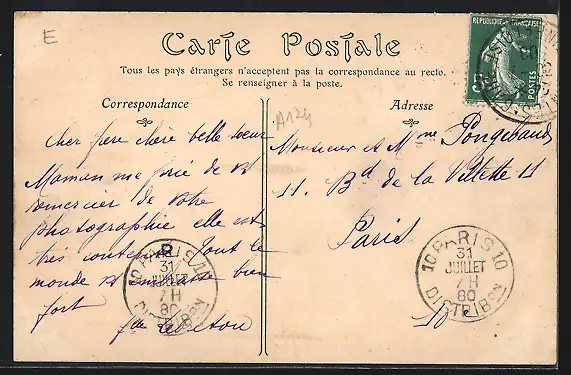 E
Carte Postale
Tous les pays étrangers n'acceptent pas la correspondance au recto.
Se renseigner à la poste.
Correspondance
Adresse
A124
RÉPUBLIQUE FRANÇAISE
POSTES
cher frère chère belle soeur
Maman me prie de
remercier de votre
photographie elle est
très contente Tout le
monde embrasse bien
fort
Monsieur et Mme
11. Bd de la Villette 11
Paris
PARIS
31
JUILLET
7H
80
DISTRIBON
10 PARIS 10
31
JUILLET
7H
80
DISTRIBON